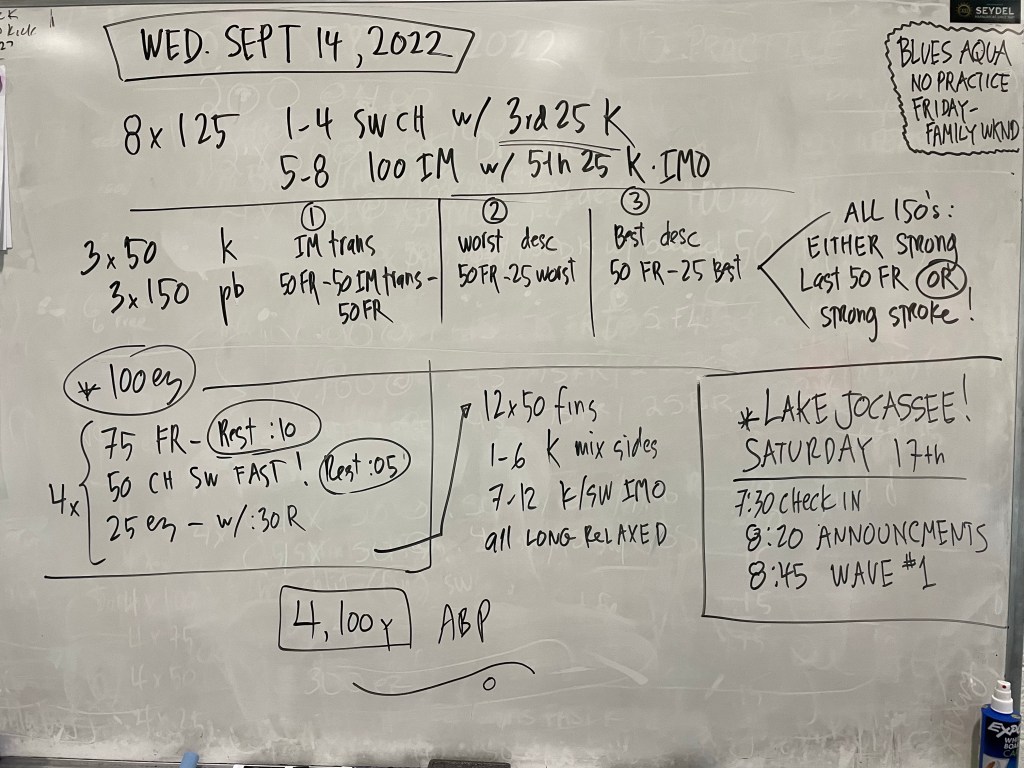 SEYDEL
WED. SEPT 14, 2022
BLUES AQUA
NO PRACTICE
FRIDAY-
FAMILY WKND
8 x 125 1-4 SW CH w/ 3rd 25 K
5-8 100 IM w/ 5th 25 K · IMO
① ② ③
3 x 50 k IM trans worst desc Best desc
3 x 150 pb 50 FR-50 IM trans- 50 FR-25 worst 50 FR-25 Best
50 FR
ALL 150's:
EITHER STRONG
Last 50 FR OR
strong stroke!
* 100 ez
4x
75 FR - Rest :10
50 CH SW FAST! Rest :05
25 ez - w/ :30 R
12 x 50 fins
1-6 K mix sides
7-12 K/SW IMO
all LONG RELAXED
* LAKE JOCASSEE!
SATURDAY 17th
7:30 CHECK IN
8:20 ANNOUNCMENTS
8:45 WAVE #1
4,100 Y ABP
EXPO